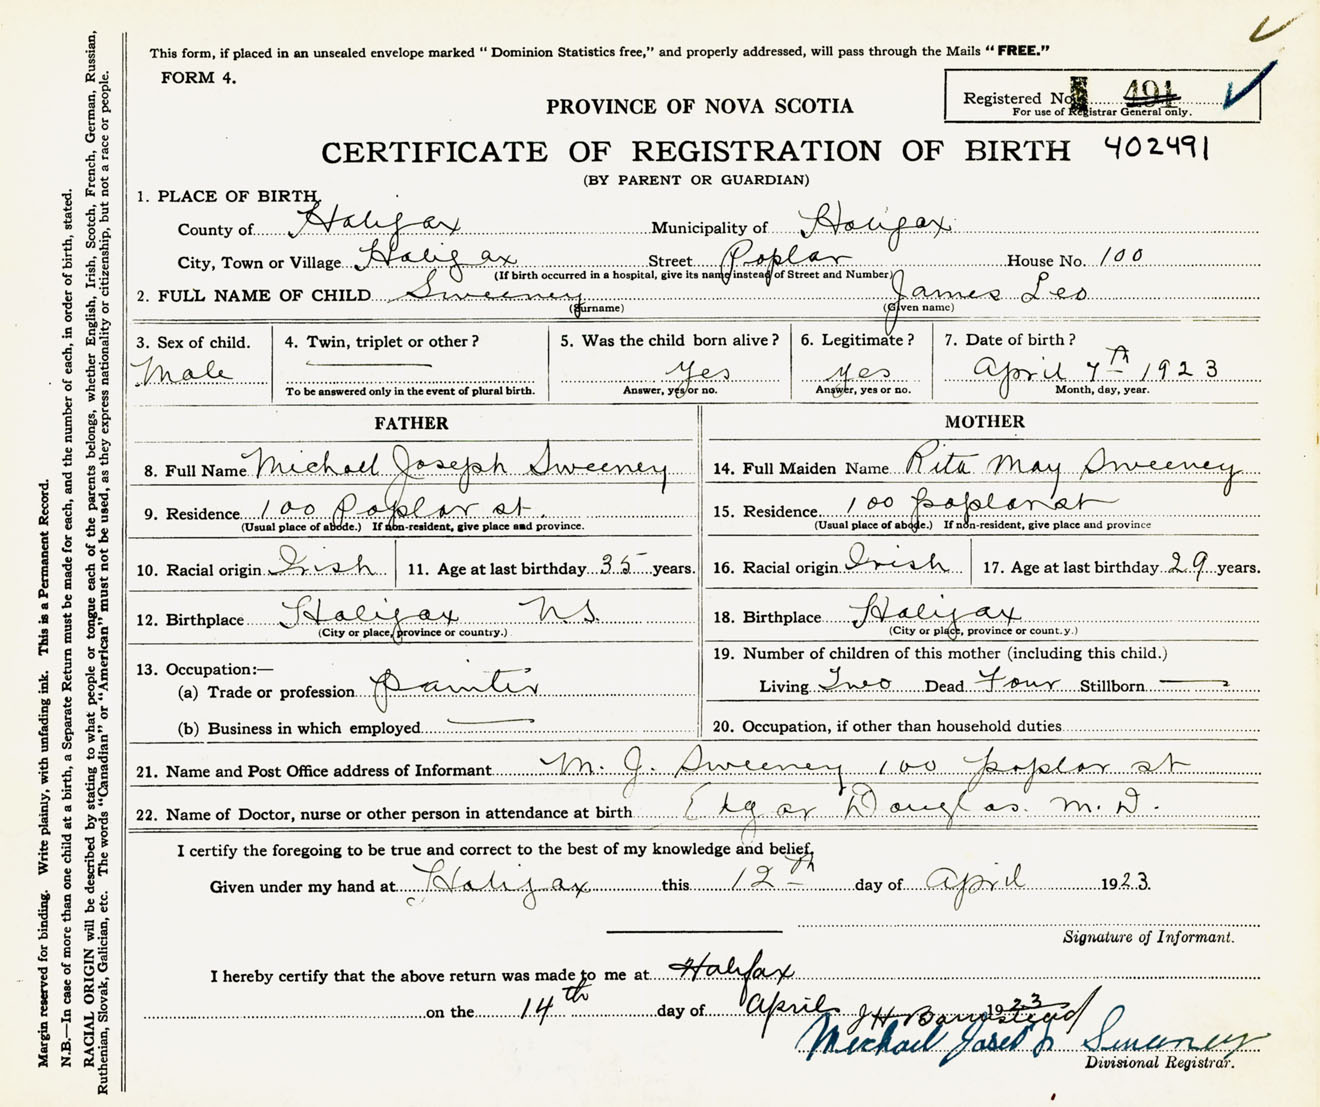 This form, if placed in an unsealed envelope marked “ Dominion Statistics free,” and properly addressed, will pass through the Mails “ FREE.”
FORM 4.
Registered No. 491
For use of Registrar General only.
PROVINCE OF NOVA SCOTIA
CERTIFICATE OF REGISTRATION OF BIRTH 402491
(BY PARENT OR GUARDIAN)
1. PLACE OF BIRTH,
County of Halifax Municipality of Halifax
City, Town or Village Halifax Street Poplar House No. 100
(If birth occurred in a hospital, give its name instead of Street and Number)
2. FULL NAME OF CHILD Sweeney James Leo
(Surname) (Given name)
3. Sex of child. 4. Twin, triplet or other ? 5. Was the child born alive ? 6. Legitimate ? 7. Date of birth ?
Male yes yes April 7th 1923
To be answered only in the event of plural birth. Answer, yes or no. Answer, yes or no. Month, day, year.
FATHER MOTHER
8. Full Name Michael Joseph Sweeney 14. Full Maiden Name Rita May Sweeney
9. Residence 100 Poplar st. 15. Residence 100 poplar st
(Usual place of abode.) If non-resident, give place and province. (Usual place of abode.) If non-resident, give place and province
10. Racial origin Irish 11. Age at last birthday 35 years. 16. Racial origin Irish 17. Age at last birthday 29 years.
12. Birthplace Halifax N.S. 18. Birthplace Halifax
(City or place, province or country.) (City or place, province or count.y.)
13. Occupation:— 19. Number of children of this mother (including this child.)
(a) Trade or profession painter Living Two Dead Four Stillborn
(b) Business in which employed 20. Occupation, if other than household duties
21. Name and Post Office address of Informant M. J. Sweeney 100 poplar st
22. Name of Doctor, nurse or other person in attendance at birth Edgar Douglas. M. D.
I certify the foregoing to be true and correct to the best of my knowledge and belief,
Given under my hand at Halifax this 12th day of April 1923.
Signature of Informant.
I hereby certify that the above return was made to me at Halifax
on the 14th day of April 1923
J H Barnstead
Michael Joseph Sweeney
Divisional Registrar.
Margin reserved for binding. Write plainly, with unfading ink. This is a Permanent Record.
N.B.—In case of more than one child at a birth, a Separate Return must be made for each, and the number of each, in order of birth, stated.
RACIAL ORIGIN will be described by stating to what people or tongue each of the parents belongs, whether English, Irish, Scotch, French, German, Russian,
Ruthenian, Slovak, Galician, etc. The words “Canadian” or “American” must not be used, as they express nationality or citizenship, but not a race or people.